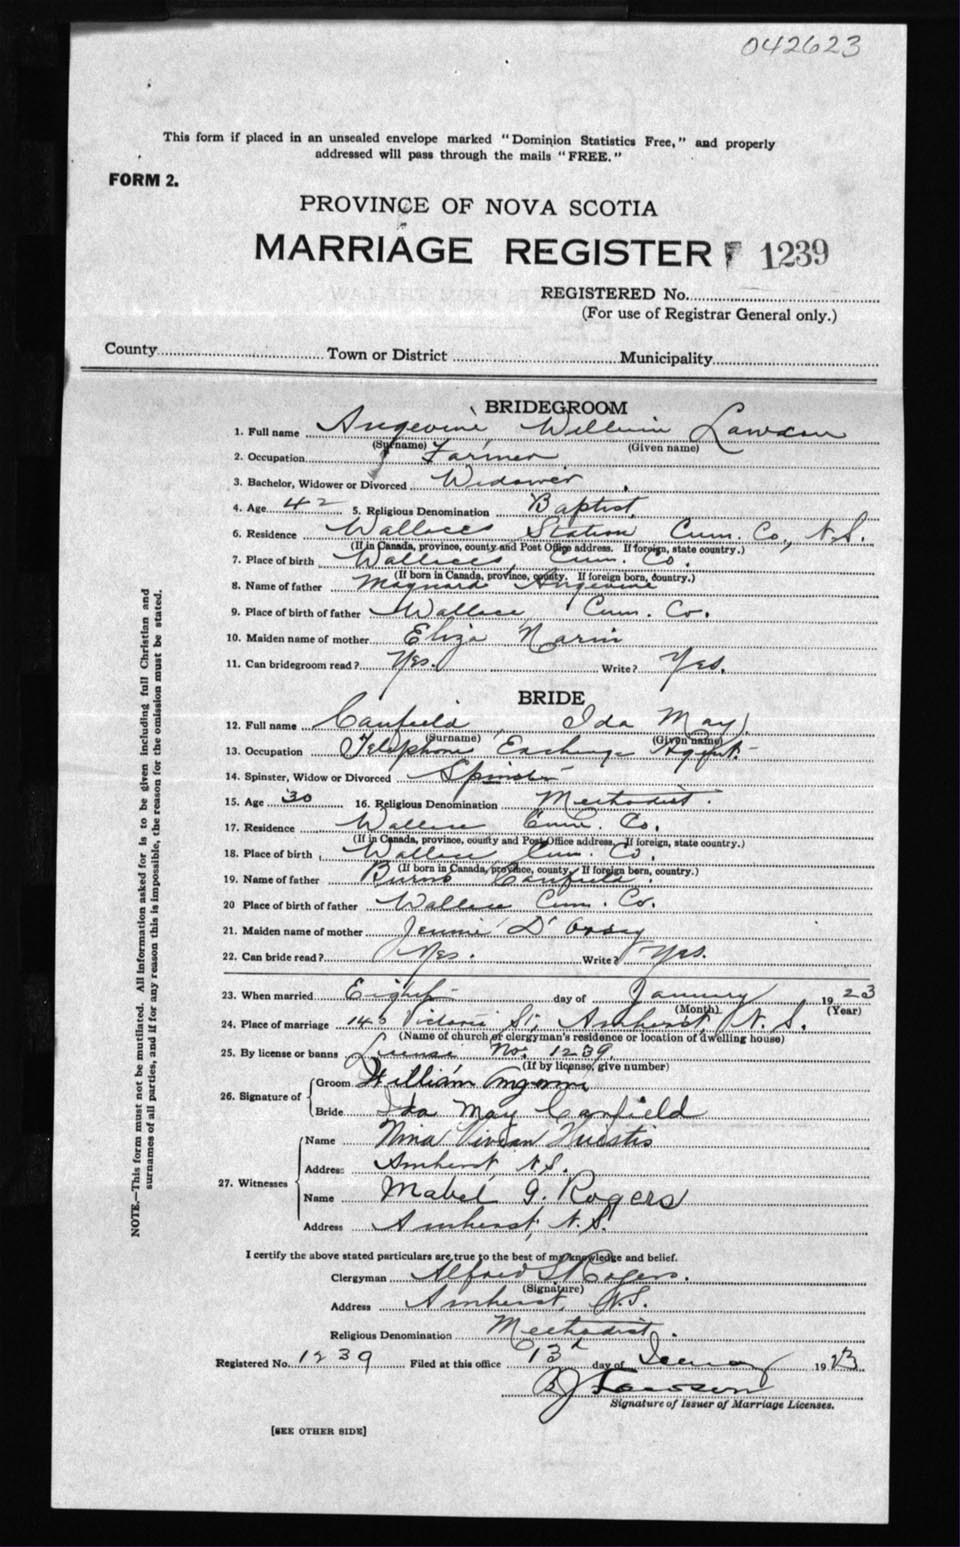 042623
This form if placed in an unsealed envelope marked "Dominion Statistics Free," and properly
addressed will pass through the mails "FREE."
FORM 2.
PROVINCE OF NOVA SCOTIA
MARRIAGE REGISTER F 1239
REGISTERED No.
(For use of Registrar General only.)
County Town or District Municipality
BRIDEGROOM
1. Full name Angevine William Lawson
(Surname) (Given name)
2. Occupation Farmer
3. Bachelor, Widower or Divorced Widower
4. Age 42 5. Religious Denomination Baptist
6. Residence Wallace Station Cum. Co., N.S.
(If in Canada, province, county and Post Office address. If foreign, state country.)
7. Place of birth Wallace, Cum. Co.
(If born in Canada, province, county. If foreign born, country.)
8. Name of father Maynard Angevine
9. Place of birth of father Wallace, Cum. Co.
10. Maiden name of mother Eliza
11. Can bridegroom read? Yes. Write? Yes.
BRIDE
12. Full name Canfield, Ida May
(Surname) (Given name)
13. Occupation Telephone Exchange Agent.
14. Spinster, Widow or Divorced Spinster
15. Age 30 16. Religious Denomination Methodist.
17. Residence Wallace Cum. Co.
(If in Canada, province, county and Post Office address. If foreign, state country.)
18. Place of birth Wallace Cum. Co.
(If born in Canada, province, county. If foreign born, country.)
19. Name of father Canfield.
20 Place of birth of father Wallace Cum. Co.
21. Maiden name of mother Jennie D'Orsay
22. Can bride read? Yes. Write? Yes.
23. When married Eighth day of January 1923
(Month) (Year)
24. Place of marriage Victoria St., Amherst, N.S.
(Name of church or clergyman's residence or location of dwelling house)
25. By license or banns License No. 1239.
(If by license, give number)
26. Signature of Groom William Angevine
Bride Ida May Canfield
27. Witnesses Name Nina Vivian Huestis
Address Amherst, N.S.
Name Mabel G. Rogers
Address Amherst, N.S.
I certify the above stated particulars are true to the best of my knowledge and belief.
Clergyman Alfred S. Rogers.
(Signature)
Address Amherst, N.S.
Religious Denomination Methodist.
Registered No. 1239 Filed at this office 13th day of January 1923
B J Lawson
Signature of Issuer of Marriage Licenses.
[SEE OTHER SIDE]
NOTE.—This form must not be mutilated. All information asked for is to be given including full Christian and
surnames of all parties, and if for any reason this is impossible, the reason for the omission must be stated.